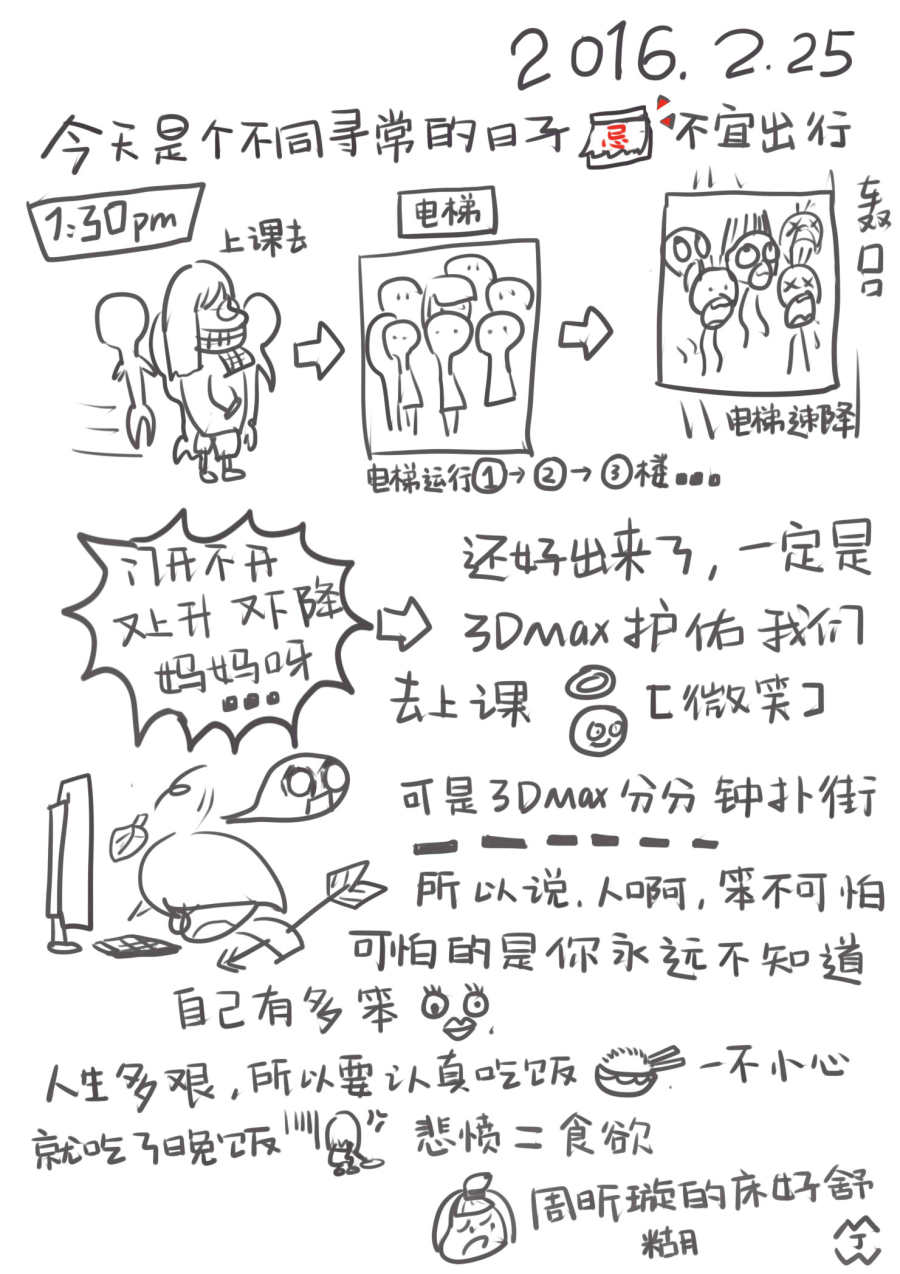 2016.2.25
今天是个不同寻常的日子 忌 不宜出行
1:30pm
上课去
电梯
轰
电梯速降
电梯运行①→②→③楼...
门开不开
又上升 又下降
妈妈呀
...
还好出来了,一定是
3Dmax护佑我们
去上课 [微笑]
可是3Dmax分分钟扑街
所以说.人啊,笨不可怕
可怕的是你永远不知道
自己有多笨
人生多艰,所以要认真吃饭 一不小心
就吃了晚饭 悲愤=食欲
周昕璇的床好舒
糊
丁